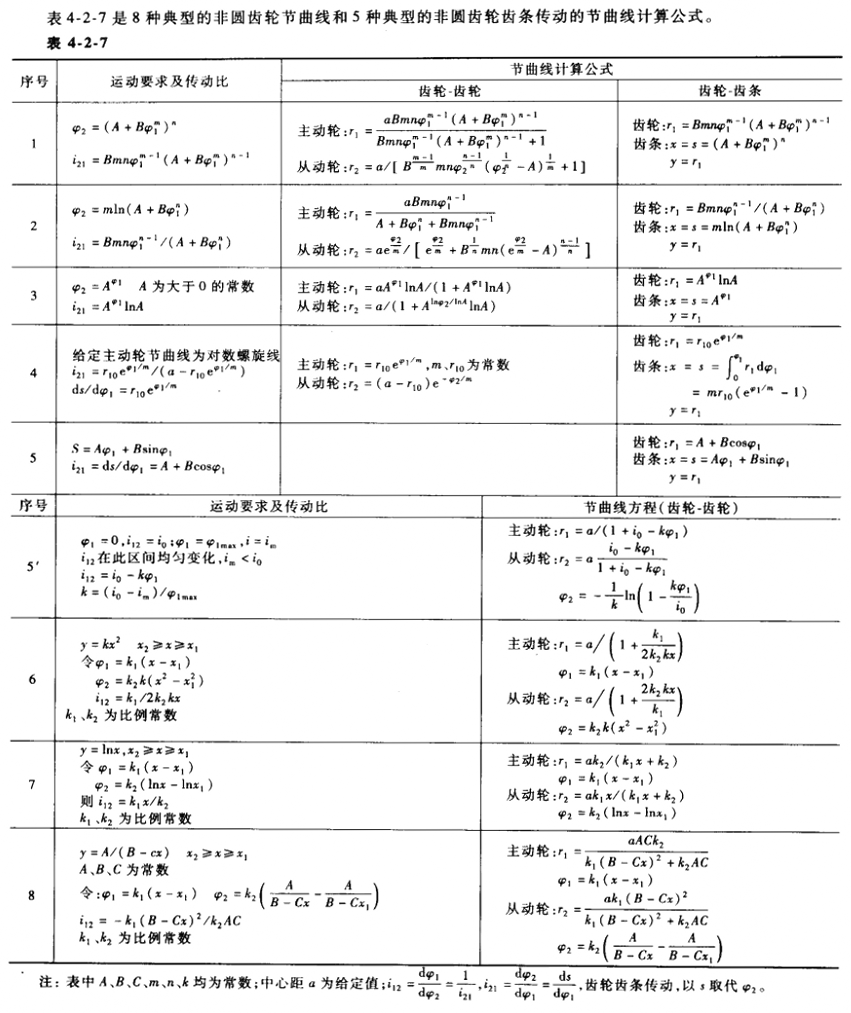 表 4-2-7 是 8 种典型的非圆齿轮节曲线和 5 种典型的非圆齿轮齿条传动的节曲线计算公式。
表 4-2-7
序号 运动要求及传动比 节曲线计算公式
齿轮-齿轮 齿轮-齿条
1
φ₂ = (A + Bφ₁^m)^n
i₂₁ = Bmnφ₁^(m-1)(A + Bφ₁^m)^(n-1)
主动轮:r₁ = aBmnφ₁^(m-1)(A + Bφ₁^m)^(n-1) / [Bmnφ₁^(m-1)(A + Bφ₁^m)^(n-1) + 1]
从动轮:r₂ = a/[B^((m-1)/m) mnφ₂^((n-1)/n) (φ₂^(1/n) - A)^(1/m) + 1]
齿轮:r₁ = Bmnφ₁^(m-1)(A + Bφ₁^m)^(n-1)
齿条:x = s = (A + Bφ₁^m)^n
y = r₁
2
φ₂ = mln(A + Bφ₁^n)
i₂₁ = Bmnφ₁^(n-1)/(A + Bφ₁^n)
主动轮:r₁ = aBmnφ₁^(n-1) / (A + Bφ₁^n + Bmnφ₁^(n-1))
从动轮:r₂ = ae^(φ₂/m)/[e^(φ₂/m) + B^(1/n) mn(e^(φ₂/m) - A)^((n-1)/n)]
齿轮:r₁ = Bmnφ₁^(n-1)/(A + Bφ₁^n)
齿条:x = s = mln(A + Bφ₁^n)
y = r₁
3
φ₂ = A^φ₁ A 为大于 0 的常数
i₂₁ = A^φ₁ lnA
主动轮:r₁ = aA^φ₁ lnA/(1 + A^φ₁ lnA)
从动轮:r₂ = a/(1 + A^(lnφ₂/lnA) lnA)
齿轮:r₁ = A^φ₁ lnA
齿条:x = s = A^φ₁
y = r₁
4
给定主动轮节曲线为对数螺旋线
i₂₁ = r₁₀e^(φ₁/m)/(a - r₁₀e^(φ₁/m))
ds/dφ₁ = r₁₀e^(φ₁/m)
主动轮:r₁ = r₁₀e^(φ₁/m),m、r₁₀为常数
从动轮:r₂ = (a - r₁₀)e^(-φ₂/m)
齿轮:r₁ = r₁₀e^(φ₁/m)
齿条:x = s = ∫₀^φ₁ r₁dφ₁
= mr₁₀(e^(φ₁/m) - 1)
y = r₁
5
S = Aφ₁ + Bsinφ₁
i₂₁ = ds/dφ₁ = A + Bcosφ₁
齿轮:r₁ = A + Bcosφ₁
齿条:x = s = Aφ₁ + Bsinφ₁
y = r₁
序号 运动要求及传动比 节曲线方程(齿轮-齿轮)
5′
φ₁ = 0,i₁₂ = i₀;φ₁ = φ₁max,i = i_m
i₁₂在此区间均匀变化,i_m < i₀
i₁₂ = i₀ - kφ₁
k = (i₀ - i_m)/φ₁max
主动轮:r₁ = a/(1 + i₀ - kφ₁)
从动轮:r₂ = a (i₀ - kφ₁)/(1 + i₀ - kφ₁)
φ₂ = -(1/k) ln(1 - kφ₁/i₀)
6
y = kx² x₂ ≥ x ≥ x₁
令φ₁ = k₁(x - x₁)
φ₂ = k₂k(x² - x₁²)
i₁₂ = k₁/2k₂kx
k₁、k₂ 为比例常数
主动轮:r₁ = a/(1 + k₁/2k₂kx)
φ₁ = k₁(x - x₁)
从动轮:r₂ = a/(1 + 2k₂kx/k₁)
φ₂ = k₂k(x² - x₁²)
7
y = lnx,x₂ ≥ x ≥ x₁
令 φ₁ = k₁(x - x₁)
φ₂ = k₂(lnx - lnx₁)
则 i₁₂ = k₁x/k₂
k₁、k₂ 为比例常数
主动轮:r₁ = ak₂/(k₁x + k₂)
φ₁ = k₁(x - x₁)
从动轮:r₂ = ak₁x/(k₁x + k₂)
φ₂ = k₂(lnx - lnx₁)
8
y = A/(B - cx) x₂ ≥ x ≥ x₁
A、B、C 为常数
令:φ₁ = k₁(x - x₁) φ₂ = k₂(A/(B - Cx) - A/(B - Cx₁))
i₁₂ = -k₁(B - Cx)²/k₂AC
k₁、k₂ 为比例常数
主动轮:r₁ = aACk₂/(k₁(B - Cx)² + k₂AC)
φ₁ = k₁(x - x₁)
从动轮:r₂ = ak₁(B - Cx)²/(k₁(B - Cx)² + k₂AC)
φ₂ = k₂(A/(B - Cx) - A/(B - Cx₁))
注: 表中 A、B、C、m、n、k 均为常数;中心距 a 为给定值;i₁₂ = dφ₁/dφ₂ = 1/i₂₁,i₂₁ = dφ₂/dφ₁ = ds/dφ₁,齿轮齿条传动,以 s 取代 φ₂。